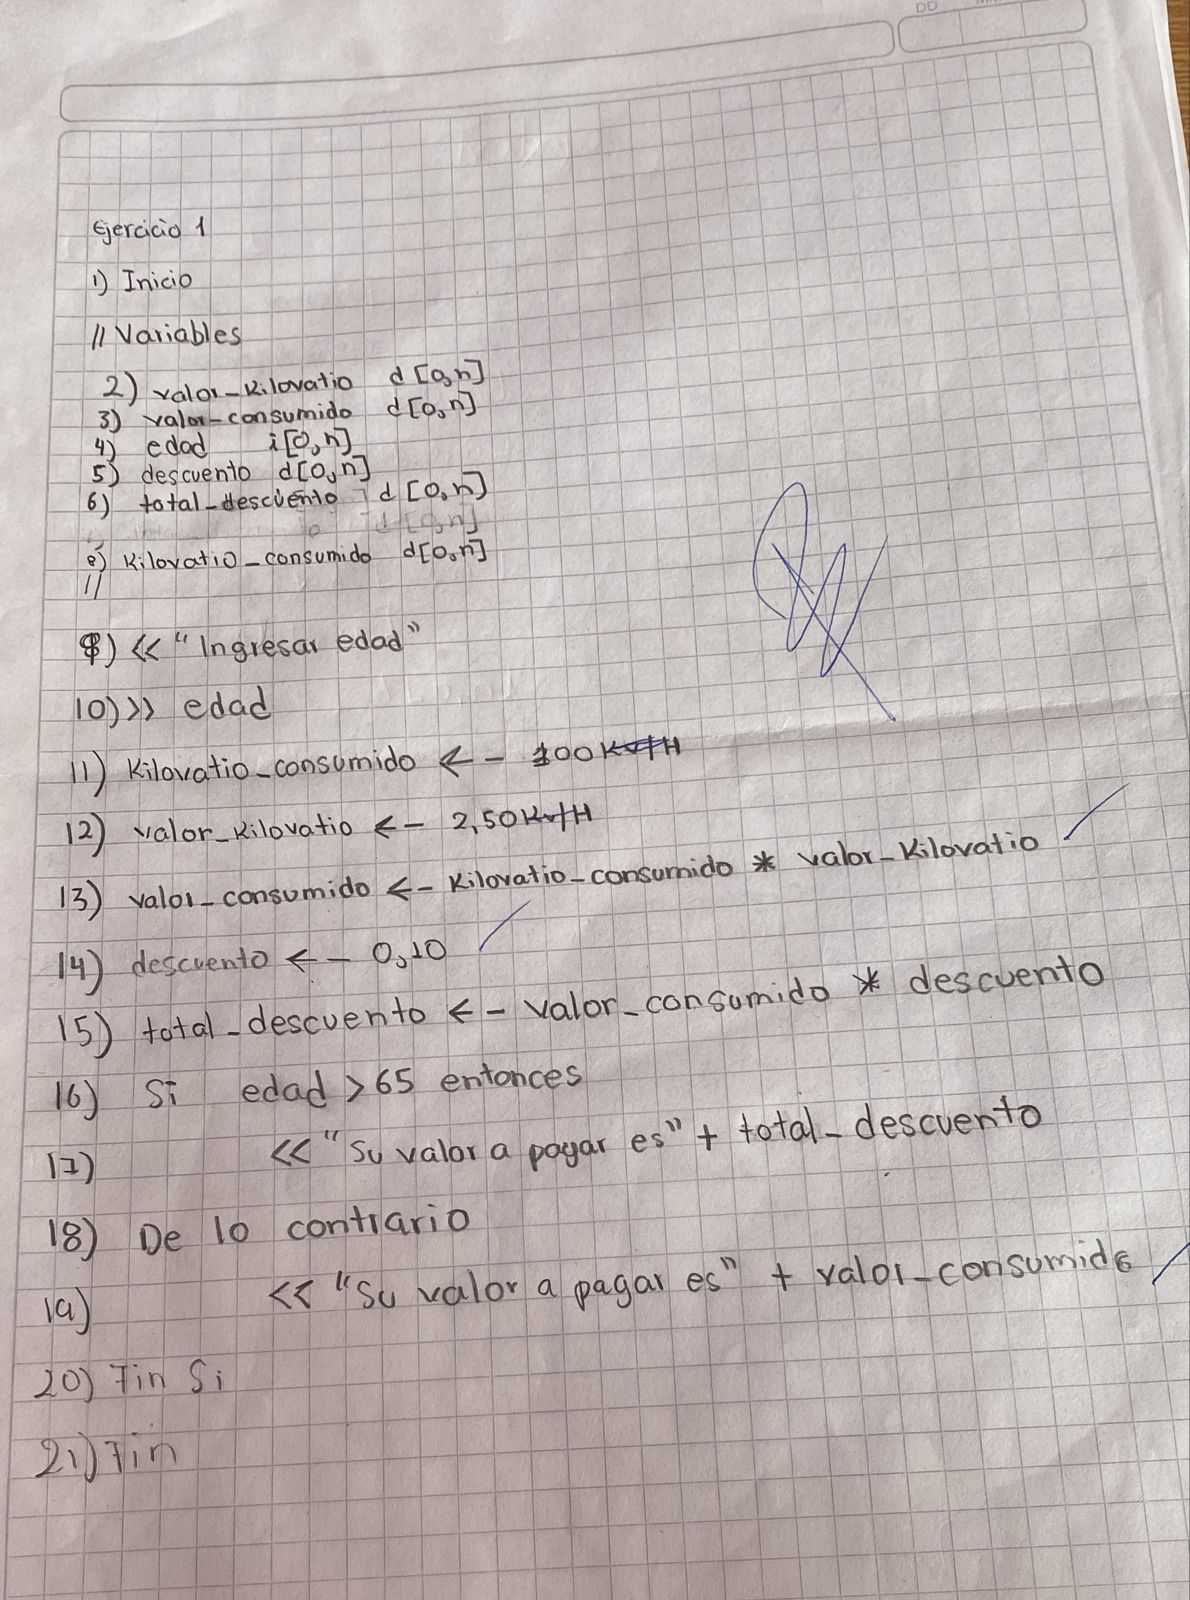 DD
Ejercicio 1
1) Inicio
// Variables
2) valor_Kilovatio d [0,n]
3) valor_consumido d[0,n]
4) edad i[0,n]
5) descuento d[0,n]
6) total_descuento d [0,n]
d[0,n]
8) Kilovatio_consumido d[0,n]
//
9) << "Ingresar edad"
10) >> edad
11) Kilovatio_consumido <- 100 Kv/H
12) valor_Kilovatio <- 2,50 Kv/H
13) valor_consumido <- Kilovatio_consumido * valor_Kilovatio
14) descuento <- 0,10
15) total_descuento <- valor_consumido * descuento
16) Si edad > 65 entonces
17) << "Su valor a pagar es" + total_descuento
18) De lo contrario
19) << "Su valor a pagar es" + valor_consumido
20) Fin Si
21) Fin